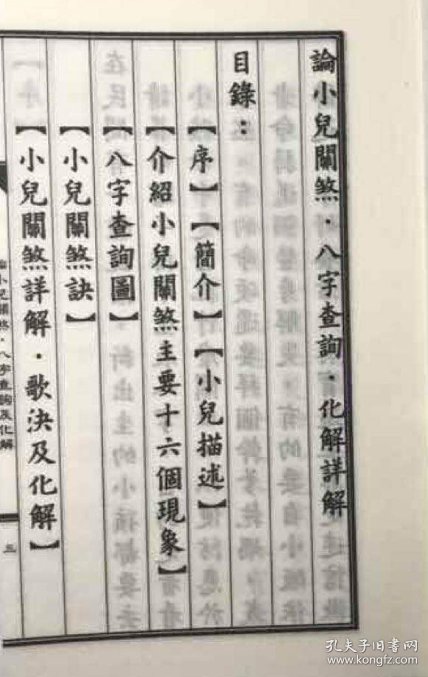 論小兒關煞·八字查詢·化解詳解
目錄：
【序】【簡介】【小兒描述】
【介紹小兒關煞主要十六個現象】
【八字查詢圖】
【小兒關煞訣】
【小兒關煞詳解·歌決及化解】
論小兒關煞·八字查詢及化解
三
孔夫子旧书网
www.kongfz.com